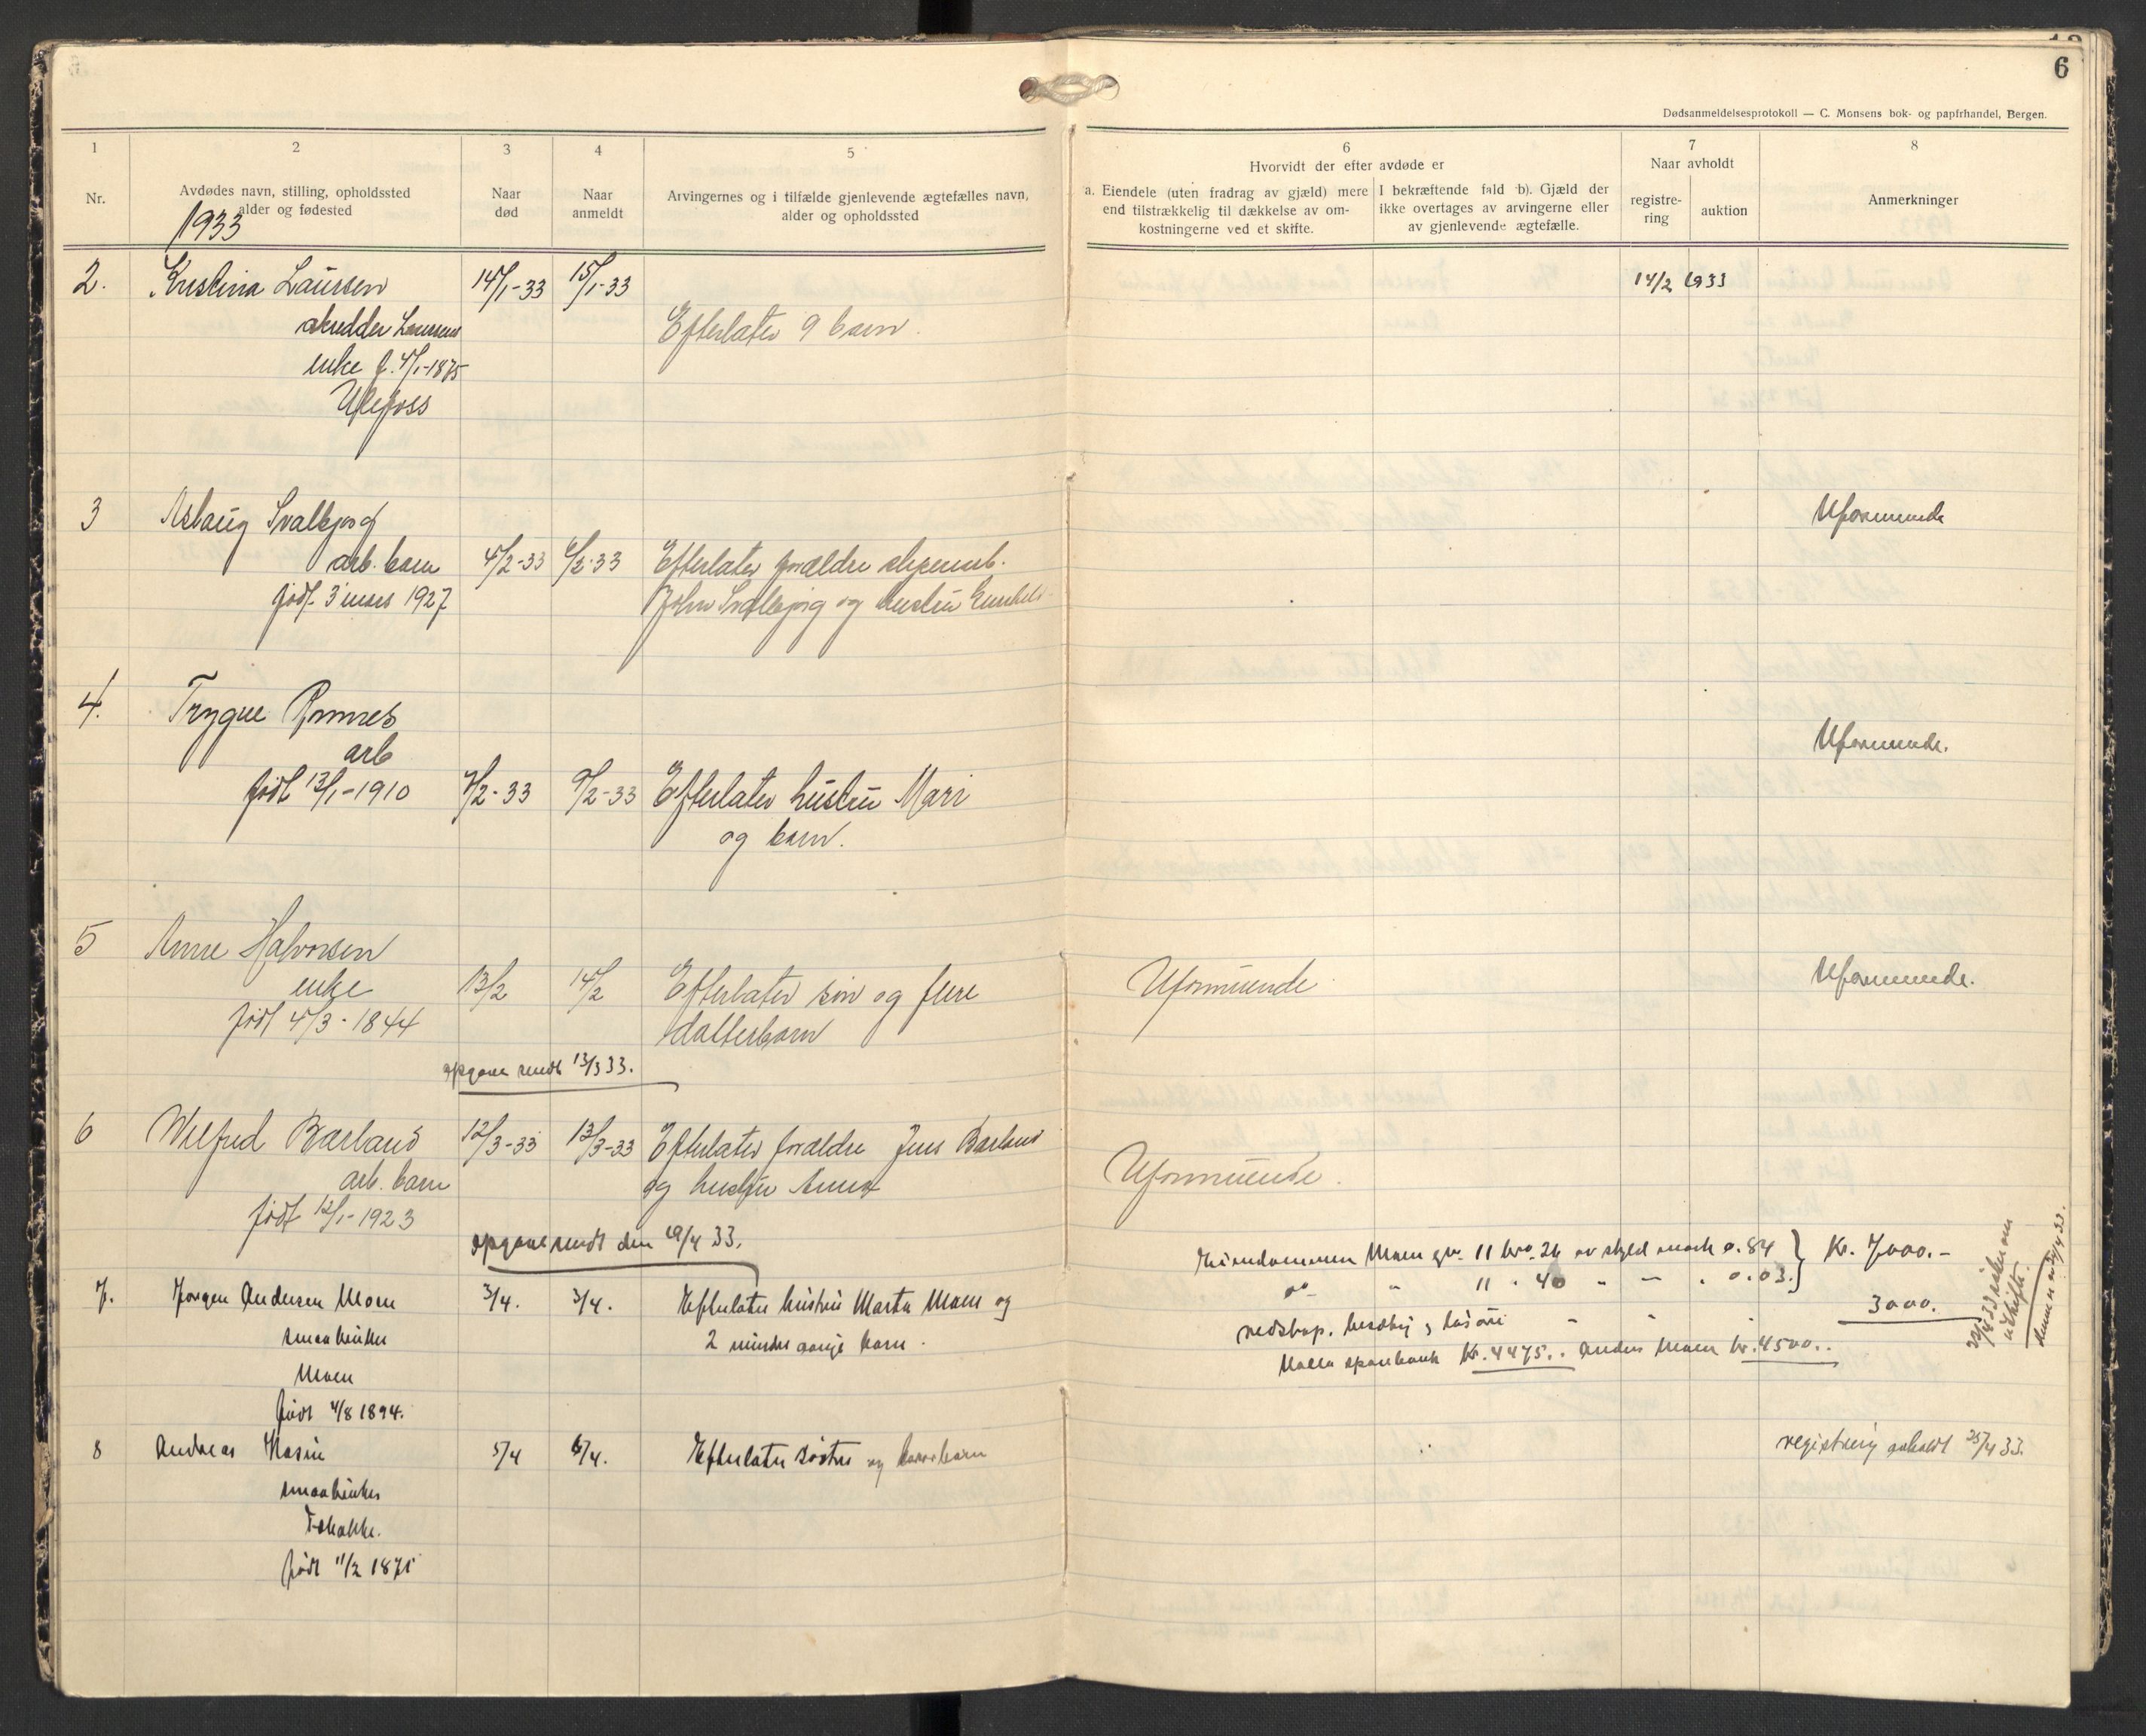 6
Dødsanmeldelsesprotokoll — C. Monsens bok- og papirhandel, Bergen.
1
Nr.
2
Avdødes navn, stilling, opholdssted
alder og fødested
1933
3
Naar
død
4
Naar
anmeldt
5
Arvingernes og i tilfælde gjenlevende ægtefælles navn,
alder og opholdssted
6
Hvorvidt der efter avdøde er
a. Eiendele (uten fradrag av gjæld) mere
end tilstrækkelig til dækkelse av om-
kostningerne ved et skifte.
I bekræftende fald b). Gjæld der
ikke overtages av arvingerne eller
av gjenlevende ægtefælle.
7
Naar avholdt
registre-
ring
auktion
8
Anmerkninger
2. Kristina Laursen 14/1-33 15/1-33 14/2 1933
skredder Laursens
Efterlater 9 barn.
enke f. 4/1-1875
Ulefoss
3 Aslaug Svalbjørg Uformuende
arb. barn 4/2-33 6/2-33 Efterlater forældre
født 3 mars 1927 John Svalbjørg og hustru
4. Trygve Romnes
arb Uformuende.
født 13/1-1910 7/2-33 9/2-33 Efterlater hustru Mari
og barn.
5 Anne Halvorsen
enke 13/2 14/2 Efterlater søn og flere Uformuende Uformuende.
født 4/3-1844 datterbarn
opgave sendt 13/3 33.
6 Wilfred Bærland 12/3-33 13/3-33 Efterlater forældre Jens Bærland
arb. barn og hustru Anna Uformuende.
født 12/1-1923
opgave sendt den 19/4 33.
Eiendommen Moen gr. 11 bro. 26 av skyld mark 0.84 } Kr. 7000.-
do " 11 " 40 " — . 0.03.}
7. Jørgen Andersen Moen 3/4. 3/4. Efterlater hustru Marta Moen og
redskap, besætning, løsøre " " 3000.
smaabruker 2 mindreaarige barn.
Holla sparebank Kr. 4475.. Anders Moen kr. 4500..
Moen
født 4/8 1894.
8 Andreas 5/4 6/4. Efterlater søster og registrering avholdt 25/4 33.
smaabruker
født 11/2 1871